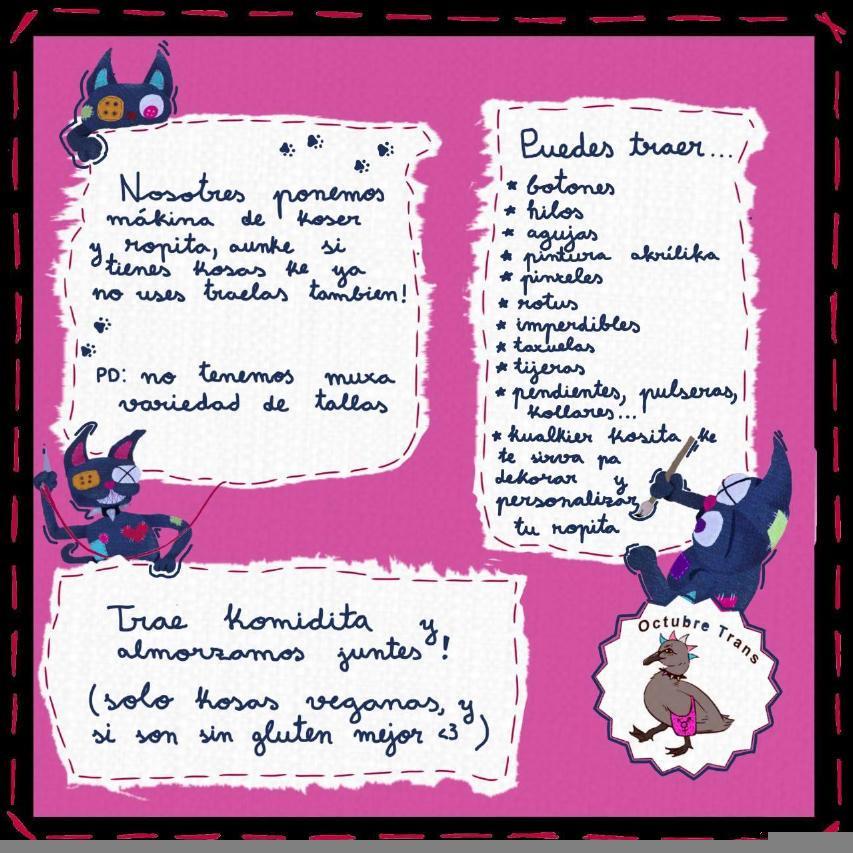 Nosotres ponemos
mákina de koser
y ropita, aunke si
tienes kosas ke ya
no uses traelas tambien!
PD: no tenemos muxa
variedad de tallas
Puedes traer...
* botones
* hilos
* agujas
* pintura akrílika
* pinxeles
* rotus
* imperdibles
* taxuelas
* tijeras
* pendientes, pulseras,
kollares...
* kualkier kosita ke
te sirva pa
dekorar y
personalizar
tu ropita
Trae komidita y
almorzamos juntes!
(solo kosas veganas, y
si son sin gluten mejor <3 )
Octubre Trans